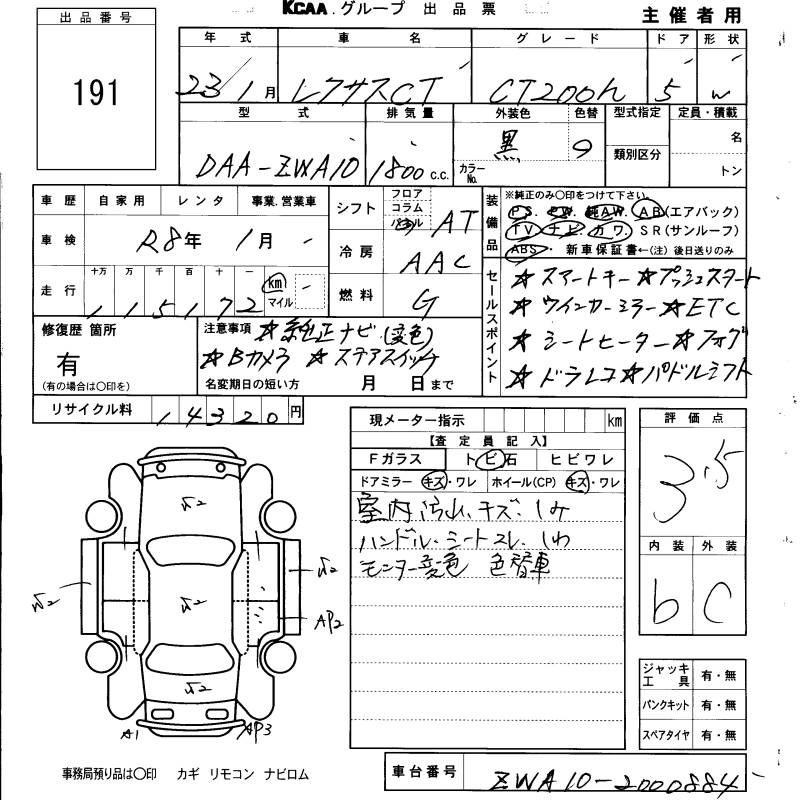 KCAA.グループ 出品票
主催者用
出品番号
191
年式 車名 グレード ドア 形状
23/1月 レクサスCT CT200h 5 W
型式 排気量 外装色 色替 型式指定 定員・積載
DAA-ZWA10 1800c.c. カラーNo. 黒 類別区分 名
トン
車歴 自家用 レンタ 事業.営業車
車検 R8年 1月
走行 十万 万 千 百 十 一 km マイル
115172
シフト フロア コラム パネル AT
冷房 AAC
燃料 G
装備品 ※純正のみ〇印をつけて下さい。
PS. PW. 純AW. AB(エアバック)
TV ナビ カワ. SR(サンルーフ)
ABS・ 新車保証書←(注)後日送りのみ
セールスポイント
☆スマートキー☆プッシュスタート
☆ウインカーミラー☆ETC
☆シートヒーター☆フォグ
☆ドラレコ☆パドルシフト
修復歴 箇所
有
(有の場合は〇印を)
注意事項 ☆純正ナビ(変色)
☆Bカメラ ☆ステアスイッチ
名変期日の短い方 月 日まで
リサイクル料 14320円
現メーター指示 km
【査定員記入】
Fガラス トビ石 ヒビワレ
ドアミラー キズ・ワレ ホイール(CP) キズ・ワレ
室内汚れ.キズ.シミ
ハンドル.シートスレ.シワ
モニター変色 色替車
評価点
3.5
内装 外装
b C
ジャッキ工具 有・無
パンクキット 有・無
スペアタイヤ 有・無
W2
W2
W2
W2
AP2
W2
A1
AP3
事務局預り品は〇印 カギ リモコン ナビロム
車台番号 ZWA10-2000884